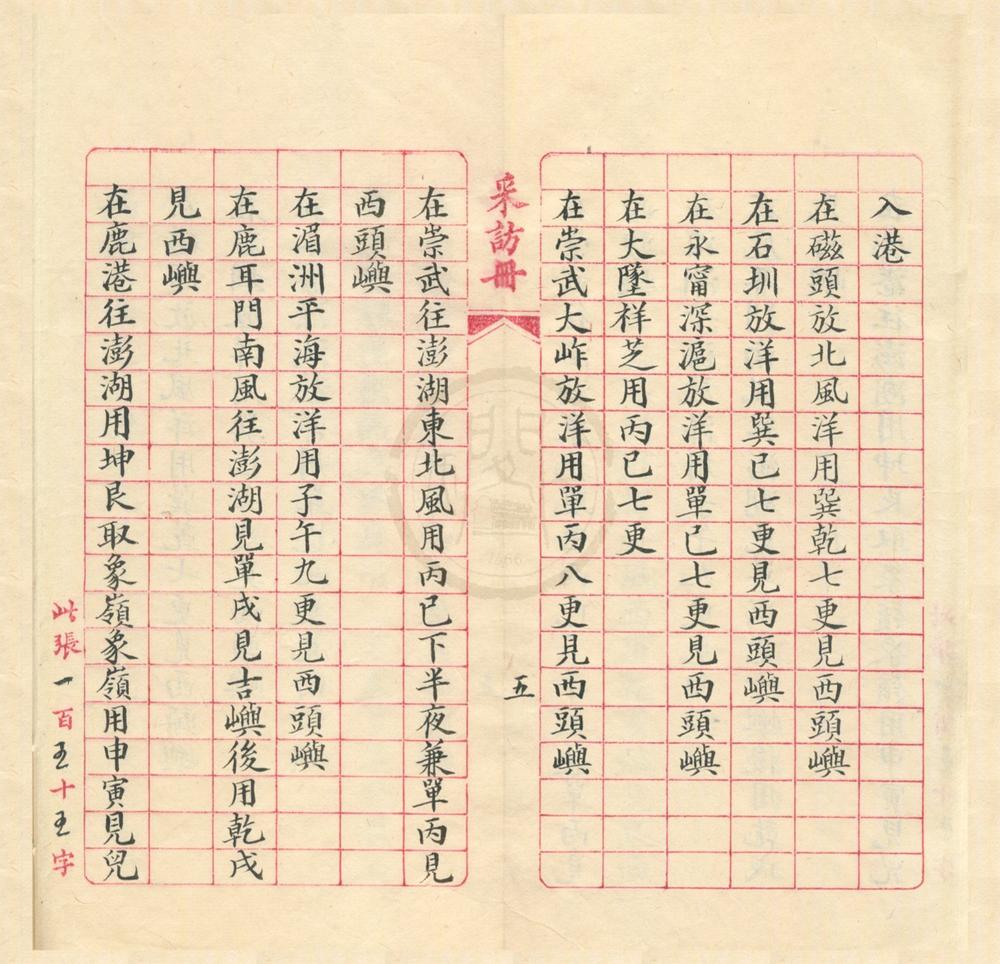 入港
在磁頭放北風洋用巽乾七更見西頭嶼
在石圳放洋用巽巳七更見西頭嶼
在永甯深滬放洋用單巳七更見西頭嶼
在大墜祥芝用丙巳七更
在崇武大岞放洋用單丙八更見西頭嶼
采訪冊
五
在崇武往澎湖東北風用丙巳下半夜兼單丙見
西頭嶼
在湄洲平海放洋用子午九更見西頭嶼
在鹿耳門南風往澎湖見單戌見吉嶼後用乾戌
見西嶼
在鹿港往澎湖用坤艮取象嶺象嶺用申寅見兒
此張一百五十五字